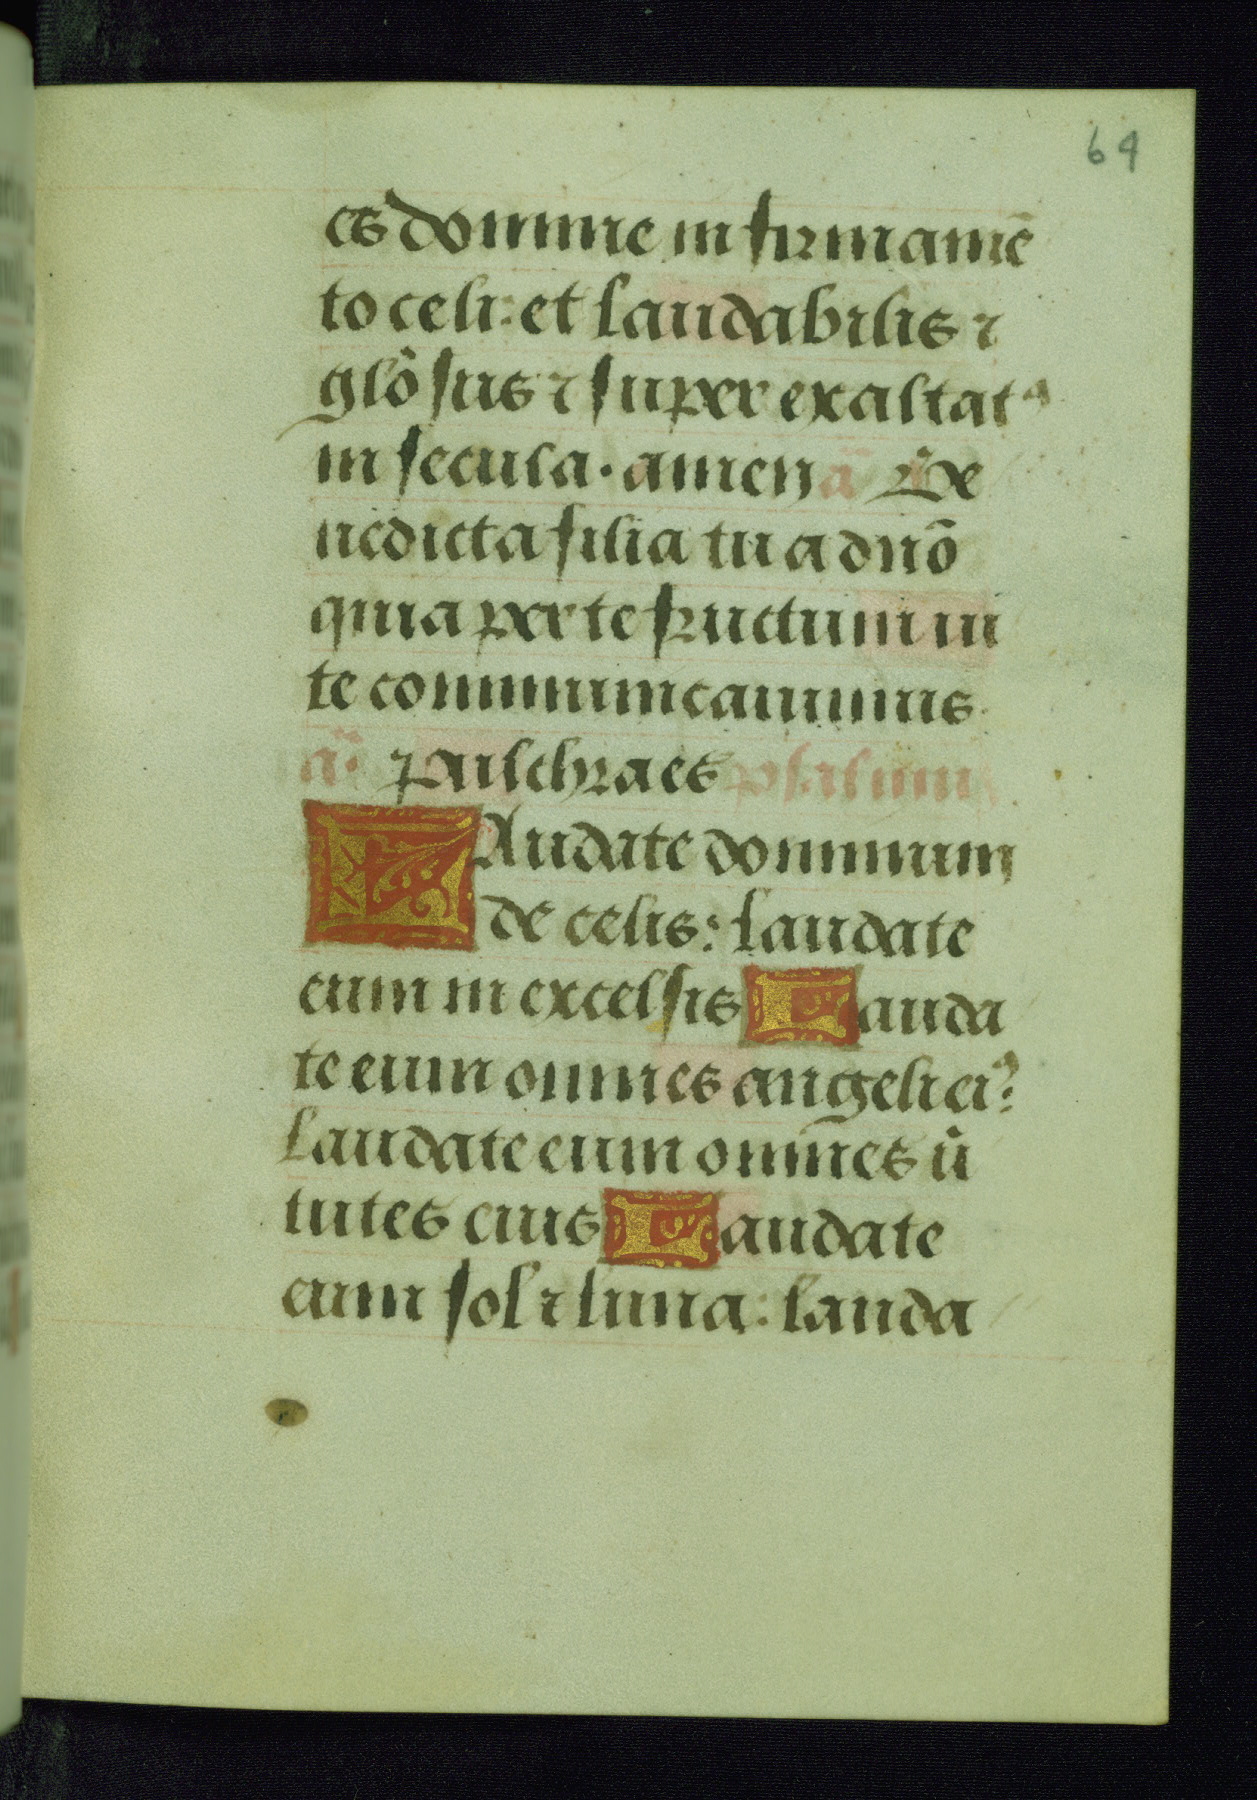 64
es domine in firmamē
to celi: et laudabilis ⁊
glōsus ⁊ super exaltatꝰ
in secula. amen ā Be
nedicta filia tu a dnō
quia per te fructum ui
te communicauimus
ā. Pulchra es psalmu
LAudate dominum
de celis: laudate
eum in excelsis Lauda
te eum omnes angeli eiꝰ:
laudate eum omnes ui
tutes eius Laudate
eum sol ⁊ luna: lauda